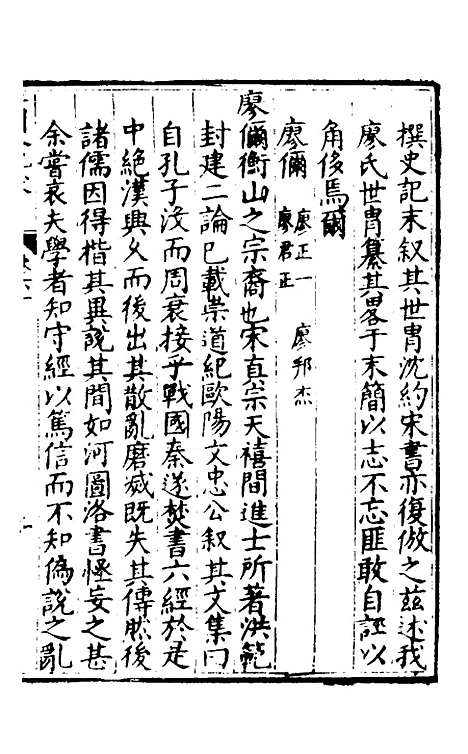 撰史記末叙其世胄沈約宋書亦復倣之兹述我
廖氏世胄纂其畧于末簡以志不忘匪敢自誣以
角侈焉爾
廖儞 廖正一 廖君正 廖邦杰
廖儞衡山之宗裔也宋真宗天禧間進士所著洪範
封建二論已載崇道紀歐陽文忠公叙其文集曰
自孔子没而周衰接乎戰國秦遂焚書六經於是
中絶漢興乆而後出其散亂磨滅既失其傳然後
諸儒因得楷其異說其間如河圖洛書怪妄之甚
余嘗哀夫學者知守經以篤信而不知偽說之亂